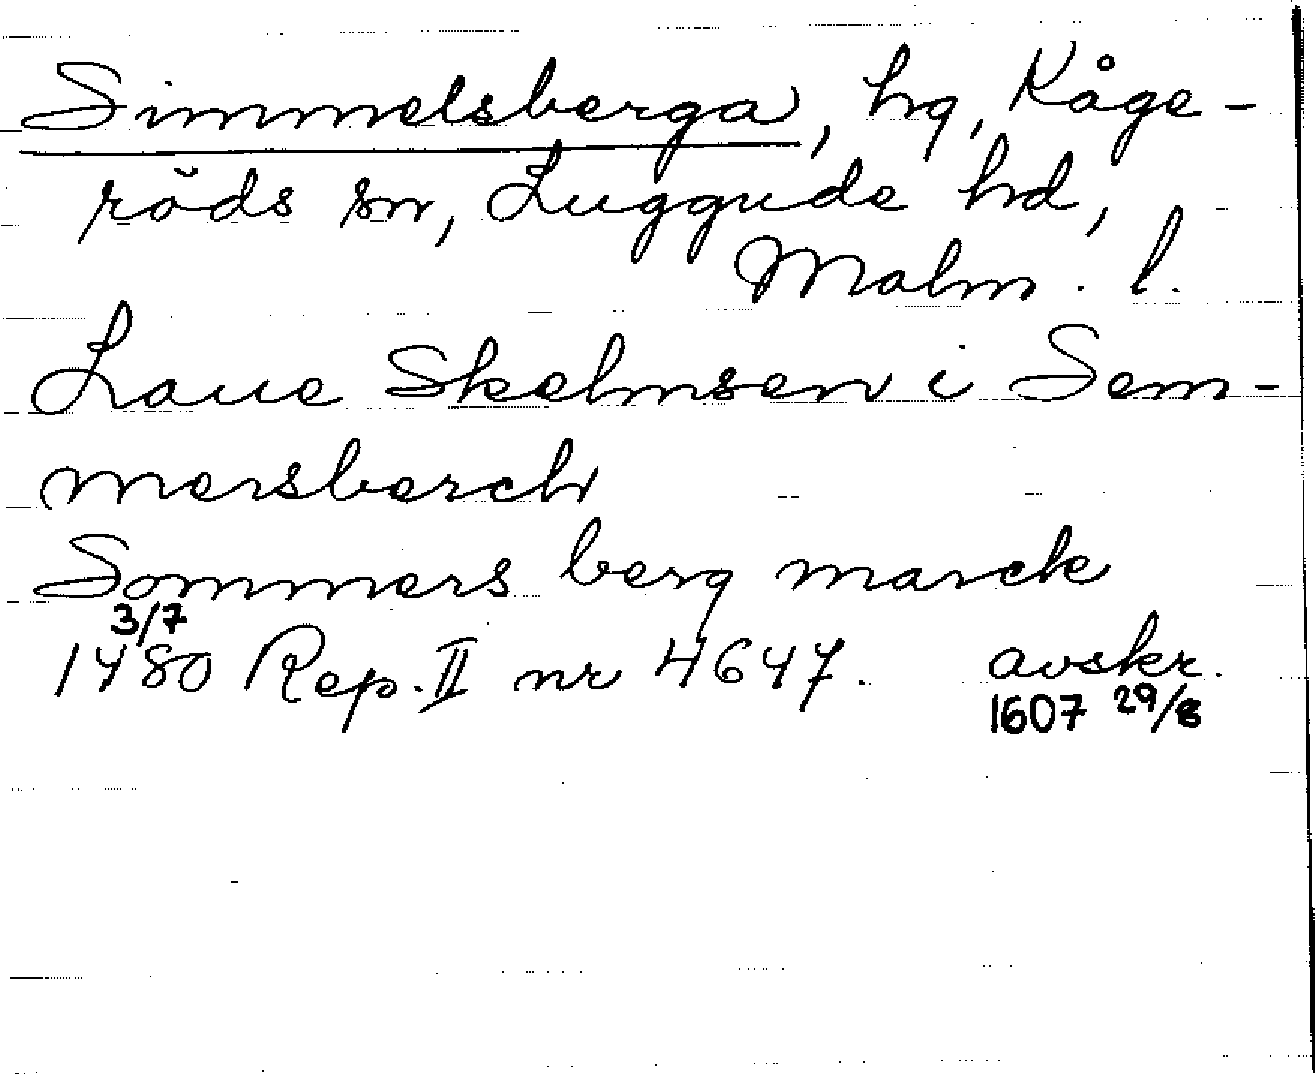 Simmelsberga, hg, Kåge-
röds sn, Luggude hd,
Malm. l.
Laue Skelmsen i Sem-
mersberch
Sommers berg marck
3/7
1480 Rep. II nr 4647. avskr.
1607 29/8